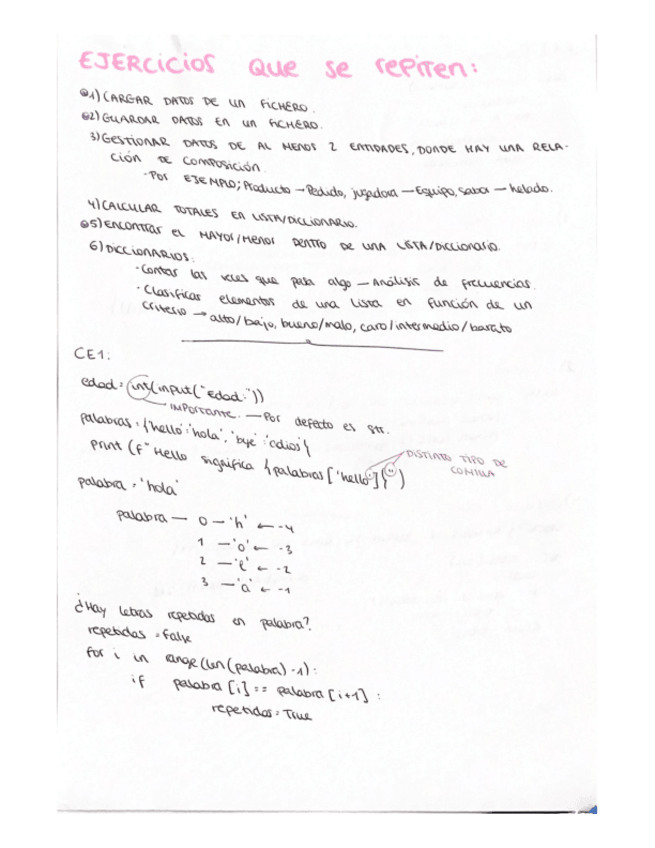 EJERCICIOS QUE SE REPITEN:
1) CARGAR DATOS DE UN FICHERO.
2) GUARDAR DATOS EN UN FICHERO.
3) GESTIONAR DATOS DE AL MENOS 2 ENTIDADES, DONDE HAY UNA RELA-
CIÓN DE COMPOSICIÓN.
· POR EJEMPLO; Producto → Pedido, jugadora — Equipo, sabor — helado.
4) CALCULAR TOTALES EN LISTA/DICCIONARIO.
5) ENCONTRAR EL MAYOR/MENOR DENTRO DE UNA LISTA/Diccionario.
6) DICCIONARIOS:
· Contar las veces que pasa algo — Análisis de frecuencias.
· Clasificar elementos de una lista en función de un
criterio → alto/bajo, bueno/malo, caro/intermedio/barato
CE1:
edad = int(input("Edad:"))
IMPORTANTE. — Por defecto es str.
palabras = {'hello':'hola', 'bye':'adios'{
print (f" Hello significa {palabras ['hello']}")
DISTINTO TIPO DE
COMILLA
palabra = 'hola'
palabra — 0 — 'h' ← -4
1 — 'o' ← -3
2 — 'l' ← -2
3 — 'a' ← -1
¿Hay letras repetidas en palabra?
repetidas = False
for i in range(len(palabra) -1):
if palabra [i] == palabra [i+1] :
repetidas = True